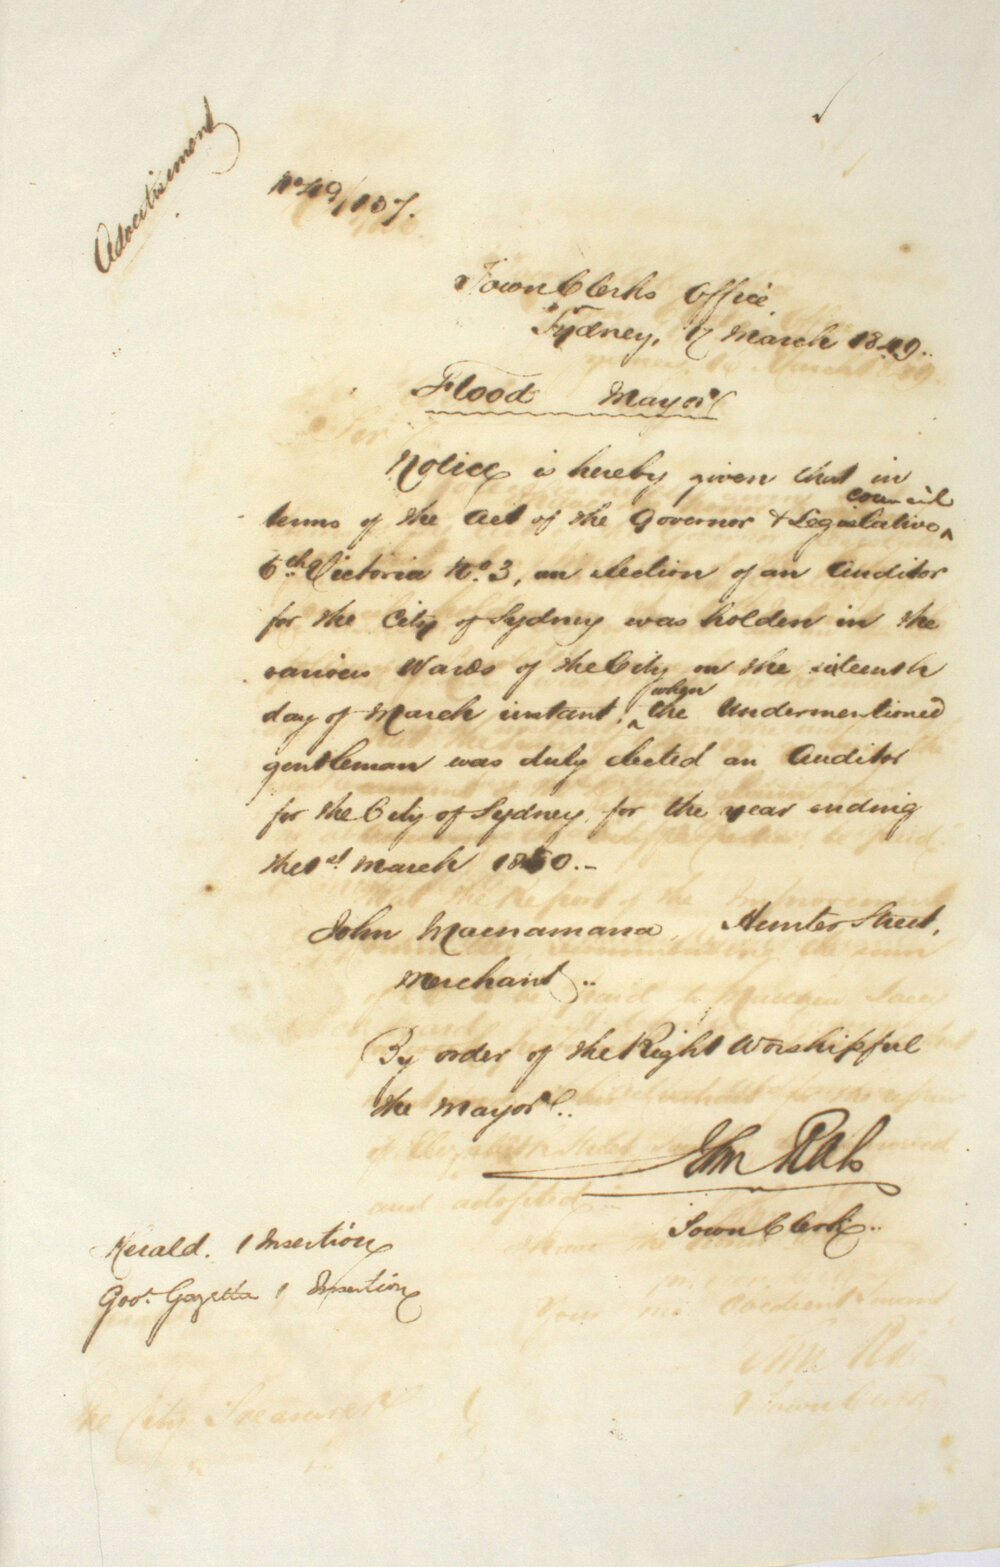 Advertisement
No 49/107.
Town Clerks Office
Sydney, 17 March 1849..
Flood Mayor
Notice is hereby given that in
terms of the Act of the Governor & Legislative council
6th Victoria No 3, an election of an Auditor
for the City of Sydney was holden in the
various Wards of the City on the sixteenth
day of March instant, when the Undermentioned
gentleman was duly elected an Auditor
for the City of Sydney, for the year ending
the 1st March 1850.-
John Macnamara, Hunter Street,
Merchant..
By order of the Right Worshipful
the Mayor..
John Rae
Town Clerk..
Herald. 1 Insertion
Govt. Gazette 1 Insertion
The City Treasurer